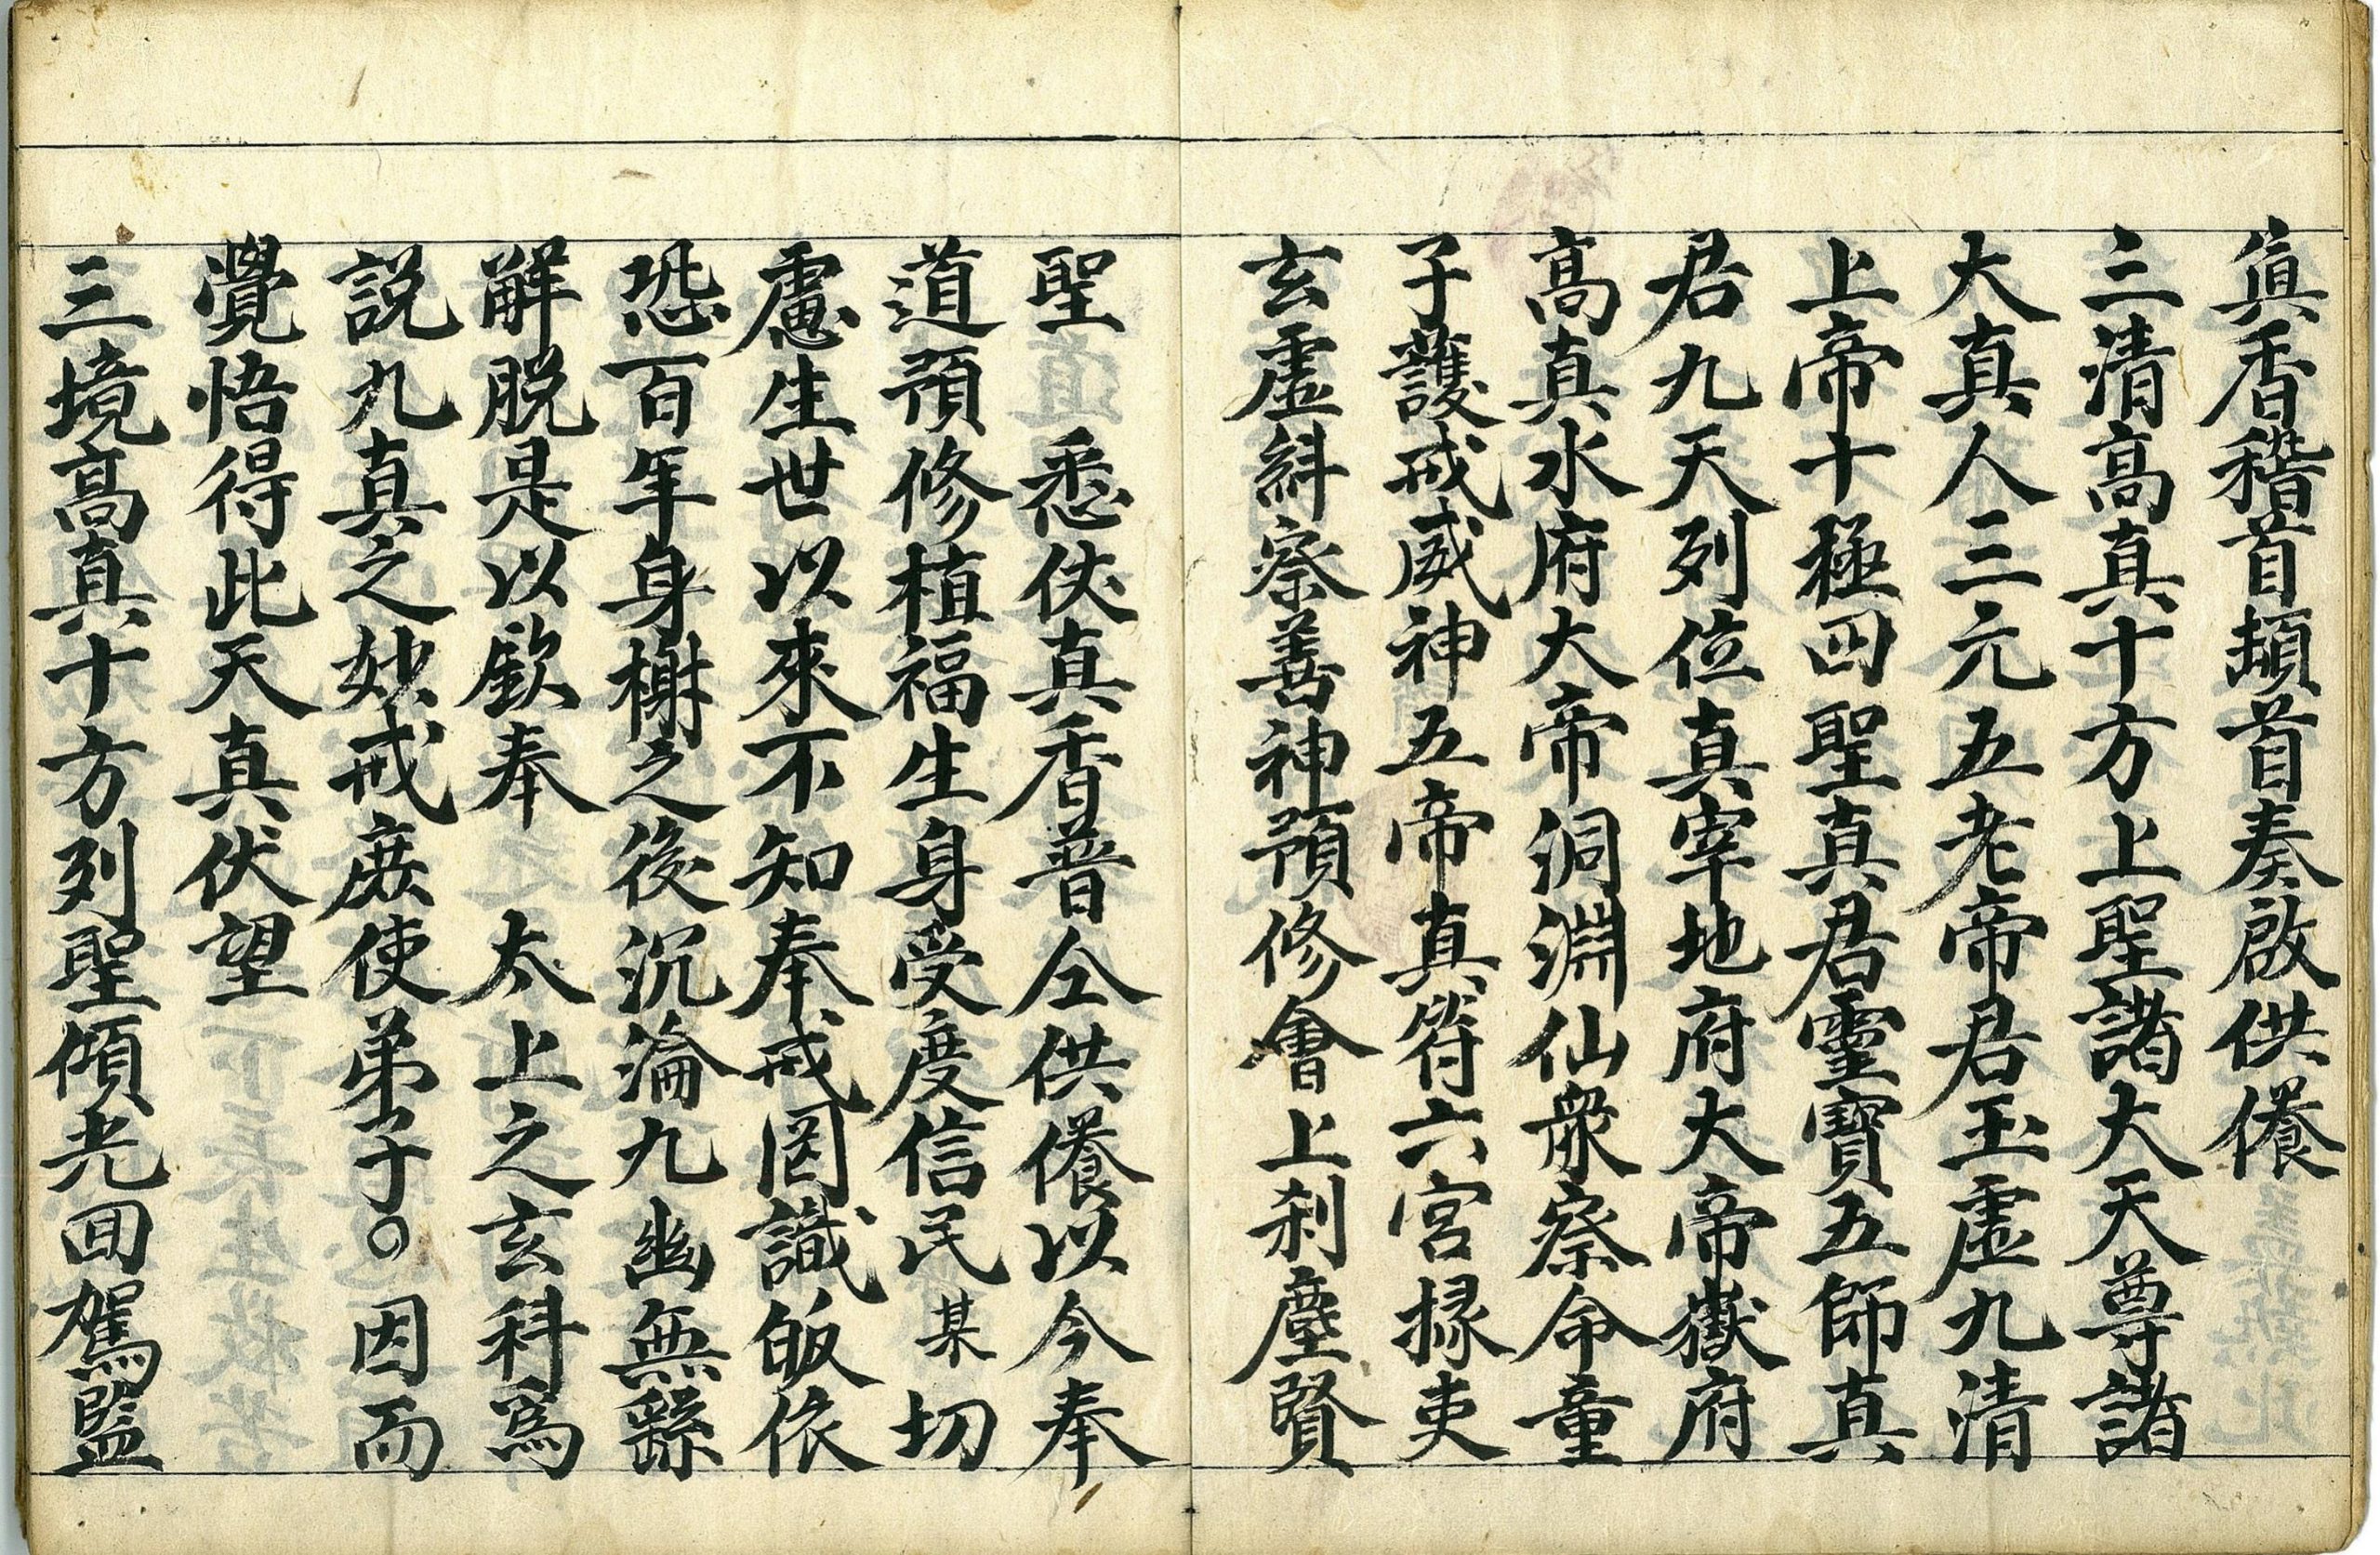 真香稽首頓首奏啟供養
三清髙真十方上聖諸大天尊諸
大真人三元五老帝君玉虛九清
上帝十極四聖真君靈寶五師真
君九天列位真宰地府大帝嶽府
髙真水府大帝洞淵仙衆察命童
子護戒威神五帝真符六宮掾吏
玄虛糾察善神預修會上剎塵賢
聖 悉仗真香普仝供養以今奉
道預修植福生身受度信民某切
慮生世以來不知奉戒罔識皈依
恐百年身榭之後沉淪九幽無繇
解脫是以欽奉 太上之玄科爲
說九真之妙戒庶使弟子○因而
覺悟得此天真伏望
三境髙真十方列聖傾光囬駕監